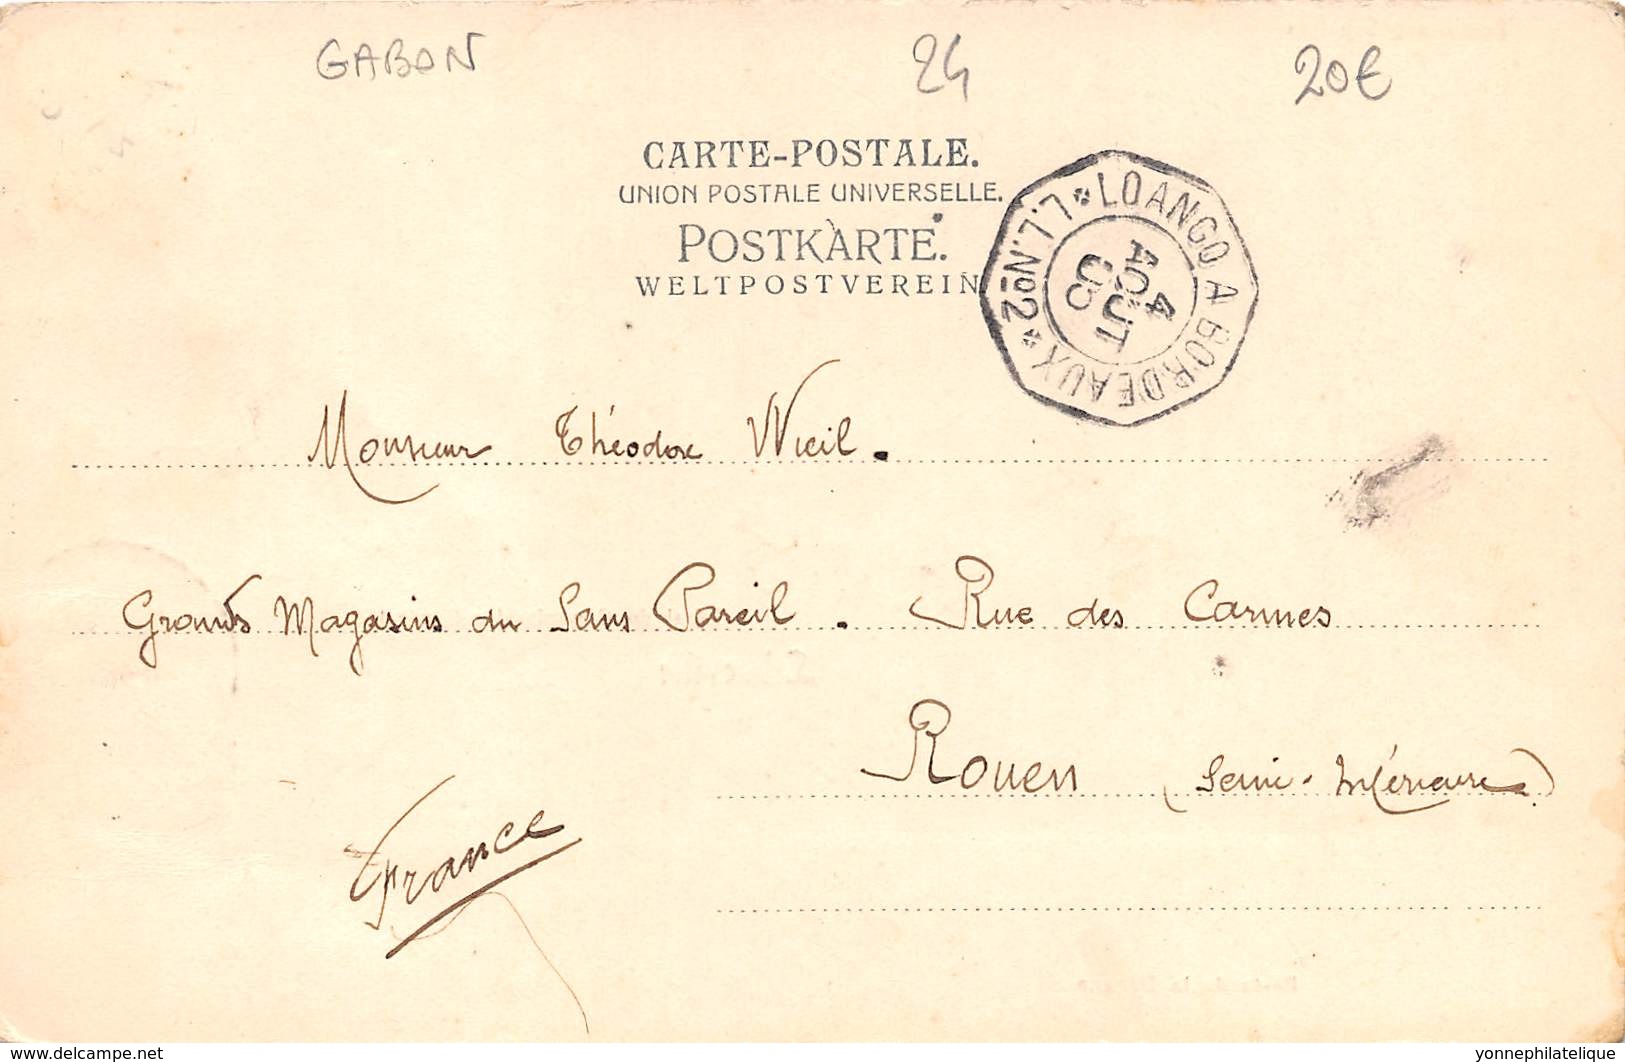 GABON 24 20€
CARTE-POSTALE.
UNION POSTALE UNIVERSELLE.
POSTKARTE.
WELTPOSTVEREIN
LOANGO A BORDEAUX * L.L.Nº2 *
4
AOUT
05
Monsieur Théodore Weil.
Grands Magasins du Sans Pareil. Rue des Carmes
Rouen (Seine-Inférieure)
France
delcampe.net
yonnephilatelique